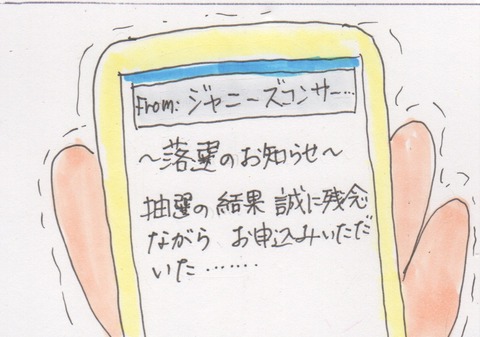 From: ジャニーズコンサー…
～落選のお知らせ～
抽選の結果 誠に残念
ながら お申込みいただ
いた……